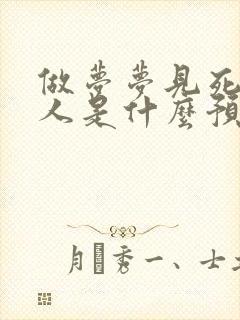 做夢夢見死
人是什麼預
秀一、士